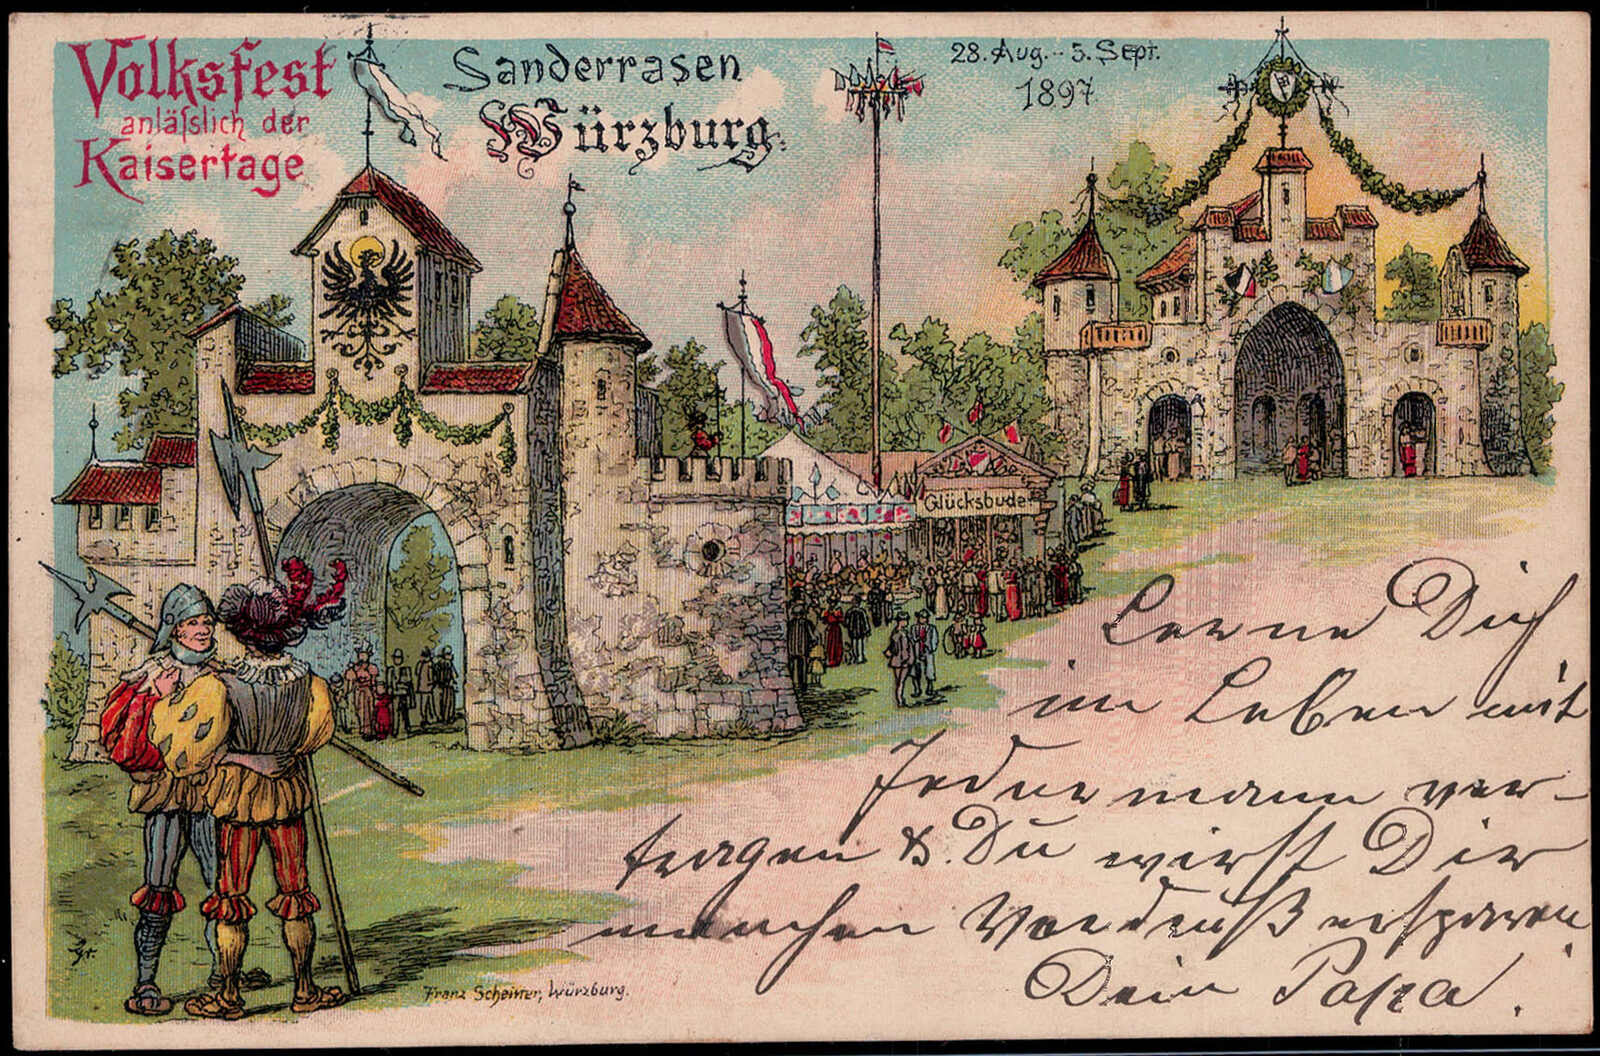 Volksfest
anläſslich der
Kaisertage
Sanderrasen
Würzburg.
28. Aug. - 5. Sept.
1897
Glücksbude
Lerne Dich
im Leben mit
Jedermann ver-
tragen &. Du wirst Dir
manchen Verdruß ersparen
Dein Papa.
Gr.
Franz Scheiner, Würzburg.